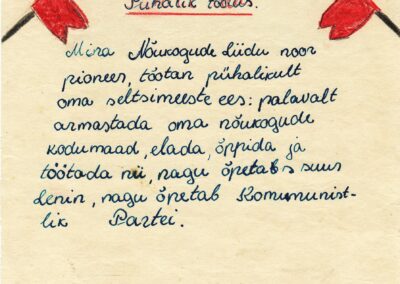 Pühalik tõotus.
Mina Nõukogude Liidu noor
pioneer, tõotan pühalikult
oma seltsimeeste ees: palavalt
armastada oma nõukogude
kodumaad, elada, õppida ja
töötada nii, nagu õpetab suur
Lenin, nagu õpetab Kommunist-
lik Partei.